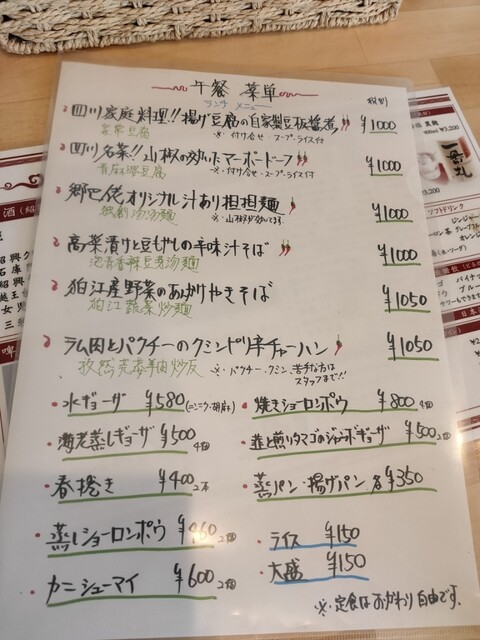 午餐 菜単
ランチ メニュー
税別
四川家庭料理!! 揚げ豆腐の自家製豆板醤煮 ¥1000
家常豆腐 ※付け合せ・スープ・ライス付
四川名菜!! 山椒の効いたマーボードーフ ¥1000
青麻婆豆腐 ※付け合せ・スープ・ライス付
郷巴佬オリジナル汁あり担担麺 ¥1000
独創汤汤麺 ※山椒が効いてます。
高菜漬けと豆もやしの辛味汁そば ¥1000
泡青香辣豆芽汤麺
狛江産野菜のあんかけやきそば ¥1050
狛江蔬菜炒麺
ラム肉とパクチーのクミンピリ辛チャーハン ¥1050
孜然芫荽羊肉炒反 ※パクチー、クミン、苦手な方は
スタッフまで!!
・水ギョーザ ¥580 (ニンニク・胡麻)
・焼きショーロンポウ ¥800 4個
・海老蒸しギョーザ ¥500 4個
・韮と煎りタマゴのジャンボギョーザ ¥500 2個
・春捲き ¥400 2本
・蒸パン・揚げパン 各¥350
・蒸しショーロンポウ ¥460 2個
・ライス ¥150
・カニシューマイ ¥600 2個
・大盛 ¥150
※定食はおかわり自由です。
¥3,200
¥3,200
ソフトドリンク
ジンジャー